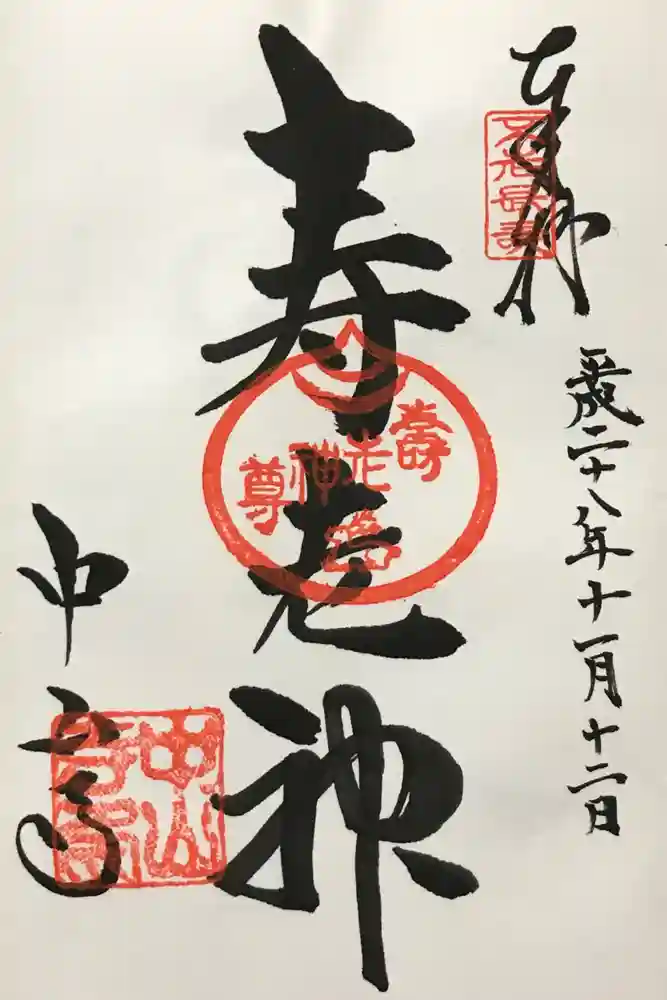 奉拝
不老長寿
平成二十八年十一月十二日
寿老神
壽老神尊
中山寺